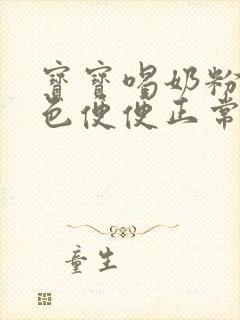 寳寳喝奶粉
色便便正常
童生